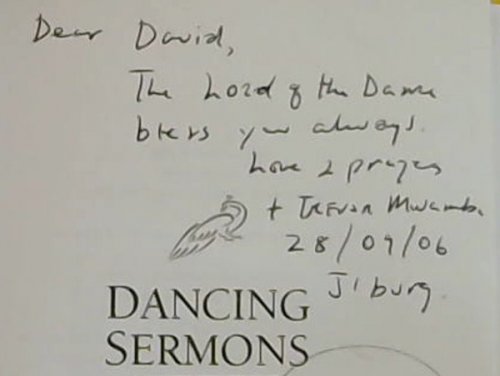 Dear David,
The Lord of the Dance
bless you always.
Love & prayers
+ Trevor Mwamba
28/09/06
J'burg
DANCING
SERMONS